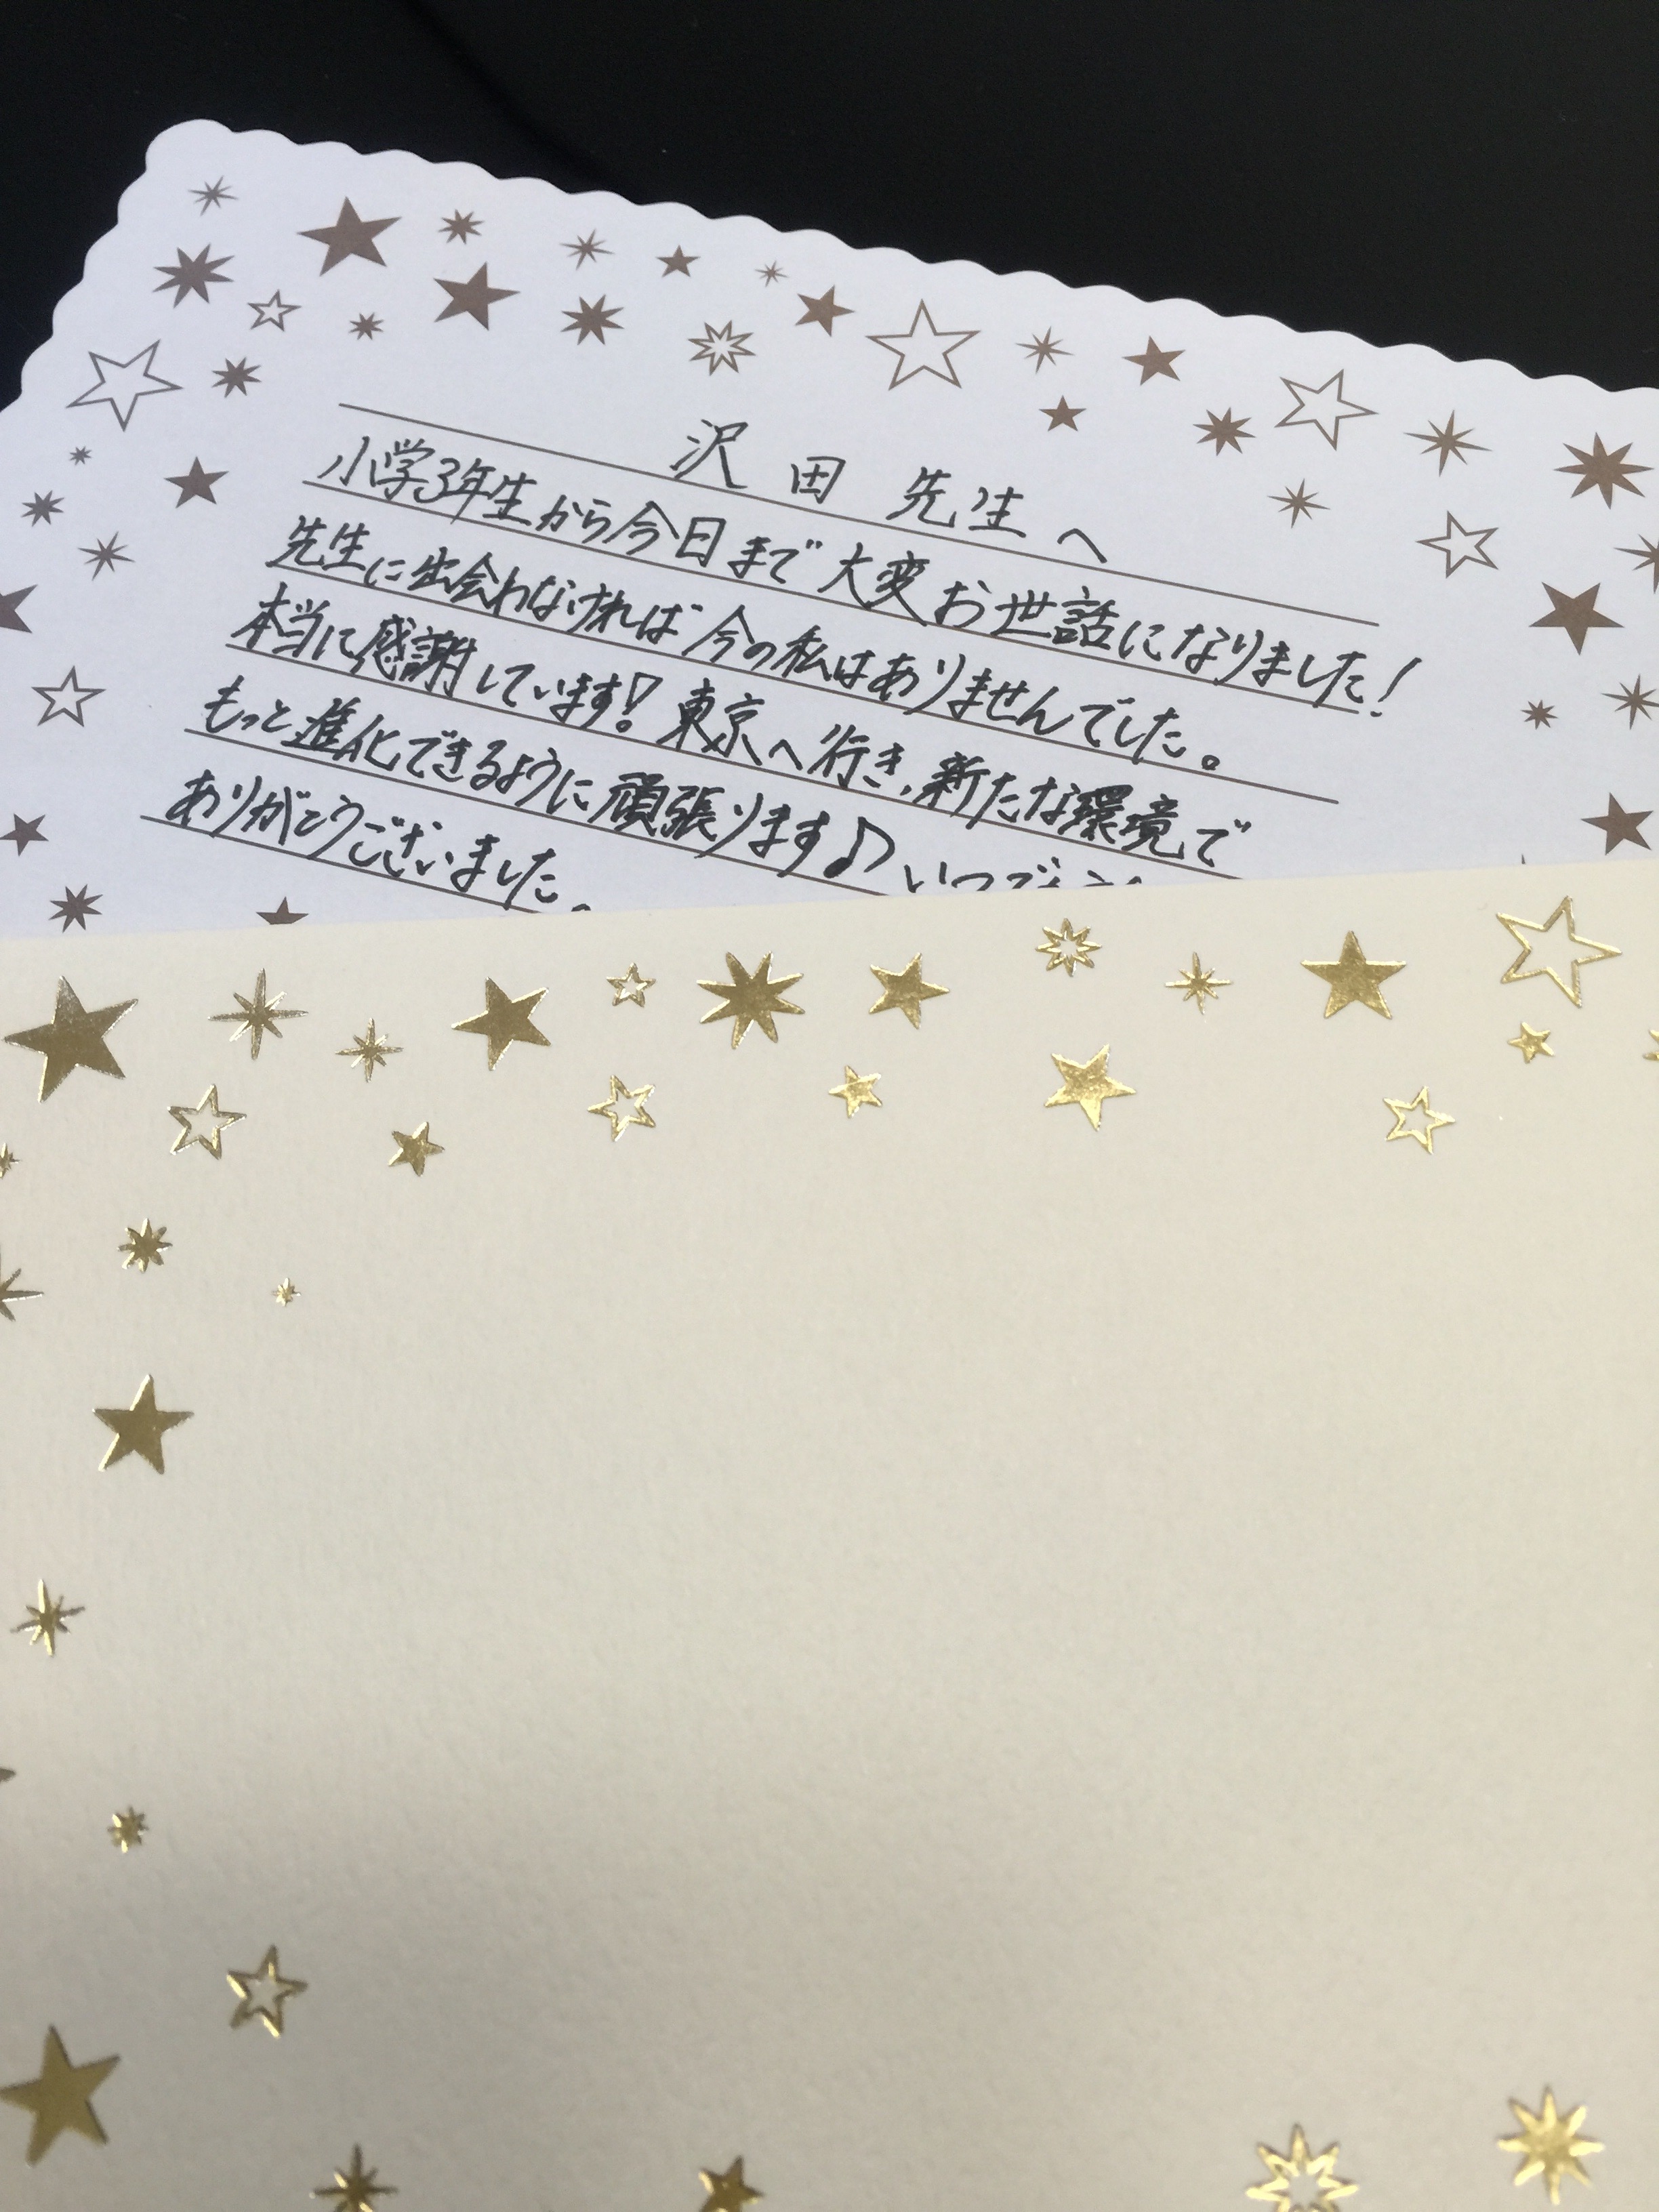 沢田先生へ
小学3年生から今日まで大変お世話になりました!
先生に出会わなければ今の私はありませんでした。
本当に感謝しています!東京へ行き、新たな環境で
もっと進化できるように頑張ります♪いつでも
ありがとうございました。